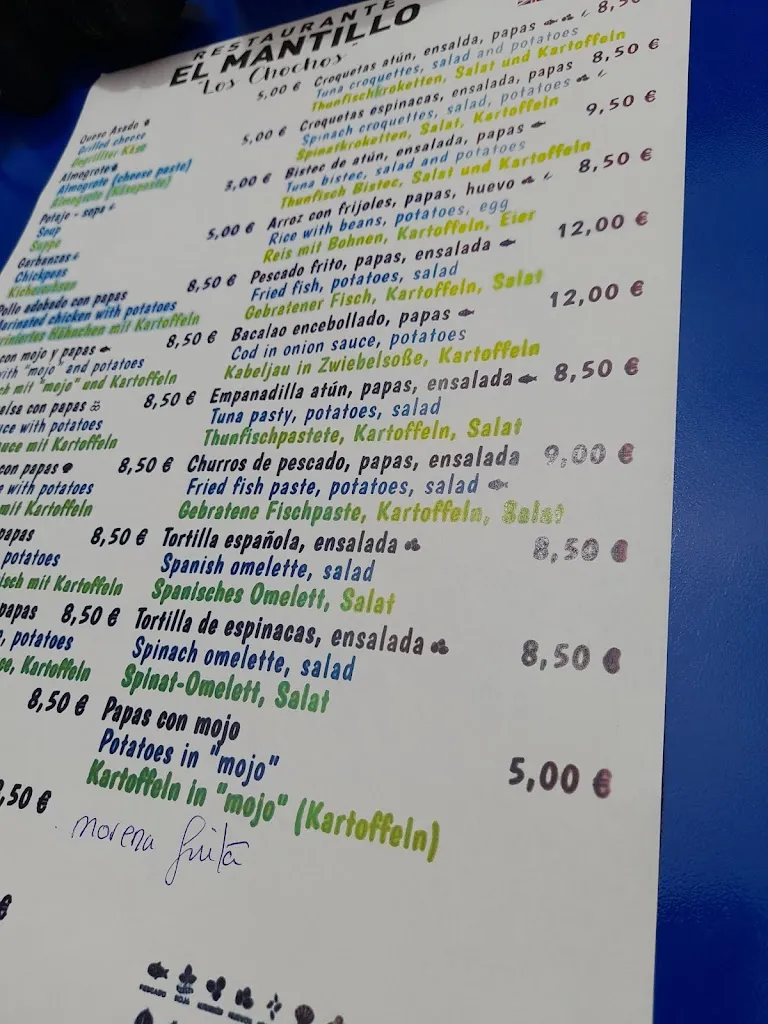 RESTAURANTE
EL MANTILLO
"Los Chochos"
Queso Asado 5,00 €
Grilled cheese
Gegrillter Käse
Almogrote 5,00 €
Almogrote (cheese paste)
Almogrote (Käsepaste)
Potaje - sopa 3,00 €
Soup
Suppe
Garbanzas 5,00 €
Chickpeas
Kichererbsen
Pollo adobado con papas 8,50 €
Marinated chicken with potatoes
mariniertes Hähnchen mit Kartoffeln
con mojo y papas 8,50 €
with "mojo" and potatoes
mit "mojo" und Kartoffeln
salsa con papas 8,50 €
with potatoes
mit Kartoffeln
con papas 8,50 €
with potatoes
mit Kartoffeln
papas 8,50 €
potatoes
mit Kartoffeln
papas 8,50 €
, potatoes
, Kartoffeln
8,50 €
,50 €
€
Croquetas atún, ensalda, papas
Tuna croquettes, salad and potatoes
Thunfischkroketten, Salat und Kartoffeln
Croquetas espinacas, ensalada, papas 8,50 €
Spinach croquettes, salad, potatoes
Spinatkroketten, Salat, Kartoffeln
Bistec de atún, ensalada, papas 9,50 €
Tuna bistec, salad and potatoes
Thunfisch Bistec, Salat und Kartoffeln
Arroz con frijoles, papas, huevo 8,50 €
Rice with beans, potatoes, egg
Reis mit Bohnen, Kartoffeln, Eier
Pescado frito, papas, ensalada 12,00 €
Fried fish, potatoes, salad
Gebratener Fisch, Kartoffeln, Salat
Bacalao encebollado, papas 12,00 €
Cod in onion sauce, potatoes
Kabeljau in Zwiebelsoße, Kartoffeln
Empanadilla atún, papas, ensalada 8,50 €
Tuna pasty, potatoes, salad
Thunfischpastete, Kartoffeln, Salat
Churros de pescado, papas, ensalada 9,00 €
Fried fish paste, potatoes, salad
Gebratene Fischpaste, Kartoffeln, Salat
Tortilla española, ensalada 8,50 €
Spanish omelette, salad
Spanisches Omelett, Salat
Tortilla de espinacas, ensalada 8,50 €
Spinach omelette, salad
Spinat-Omelett, Salat
Papas con mojo 5,00 €
Potatoes in "mojo"
Kartoffeln in "mojo" (Kartoffeln)
morena frita
PESCADO SOJA